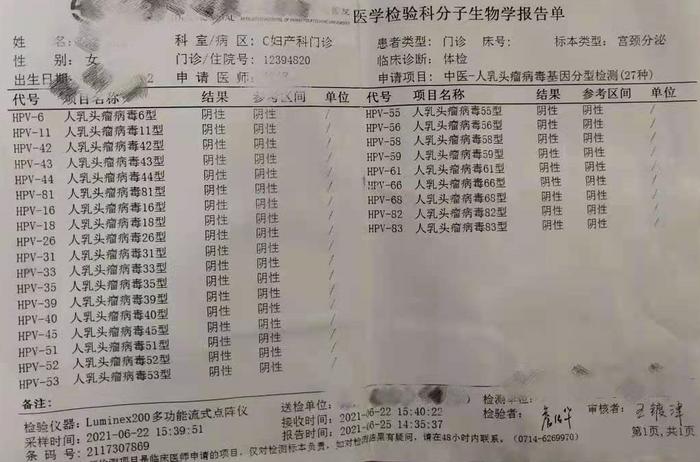 医学检验科分子生物学报告单
姓 名：
科 室/病 区： C妇产科门诊
患者类型： 门诊 床号： 标本类型： 宫颈分泌
性 别： 女
门诊/住院号： 12394820
临床诊断： 体检
出生日期 2
申 请 医 师：
申请项目： 中医-人乳头瘤病毒基因分型检测(27种)
代号 项目名称 结果 参考区间 单位
HPV-6 人乳头瘤病毒6型 阴性 阴性 /
HPV-11 人乳头瘤病毒11型 阴性 阴性 /
HPV-42 人乳头瘤病毒42型 阴性 阴性 /
HPV-43 人乳头瘤病毒43型 阴性 阴性 /
HPV-44 人乳头瘤病毒44型 阴性 阴性 /
HPV-81 人乳头瘤病毒81型 阴性 阴性 /
HPV-16 人乳头瘤病毒16型 阴性 阴性 /
HPV-18 人乳头瘤病毒18型 阴性 阴性 /
HPV-26 人乳头瘤病毒26型 阴性 阴性 /
HPV-31 人乳头瘤病毒31型 阴性 阴性 /
HPV-33 人乳头瘤病毒33型 阴性 阴性 /
HPV-35 人乳头瘤病毒35型 阴性 阴性 /
HPV-39 人乳头瘤病毒39型 阴性 阴性 /
HPV-40 人乳头瘤病毒40型 阴性 阴性 /
HPV-45 人乳头瘤病毒45型 阴性 阴性 /
HPV-51 人乳头瘤病毒51型 阴性 阴性 /
HPV-52 人乳头瘤病毒52型 阴性 阴性 /
HPV-53 人乳头瘤病毒53型 阴性 阴性 /
代号 项目名称 结果 参考区间 单位
HPV-55 人乳头瘤病毒55型 阴性 阴性 /
HPV-56 人乳头瘤病毒56型 阴性 阴性 /
HPV-58 人乳头瘤病毒58型 阴性 阴性 /
HPV-59 人乳头瘤病毒59型 阴性 阴性 /
HPV-61 人乳头瘤病毒61型 阴性 阴性 /
HPV-66 人乳头瘤病毒66型 阴性 阴性 /
HPV-68 人乳头瘤病毒68型 阴性 阴性 /
HPV-82 人乳头瘤病毒82型 阴性 阴性 /
HPV-83 人乳头瘤病毒83型 阴性 阴性 /
备注：
检验仪器： Luminex200多功能流式点阵仪
送检单位：
检测单位：
采样时间： 2021-06-22 15:39:51
接收时间： 2021-06-22 15:40:22
检验者：
审核者：
条 码 号： 2117307869
报告时间： 2021-06-25 14:35:37
第1页,共1页
检测项目是临床医师申请的项目，仅对检测标本负责，如对检测结果有疑问，请在48小时内联系。(0714-6269970)